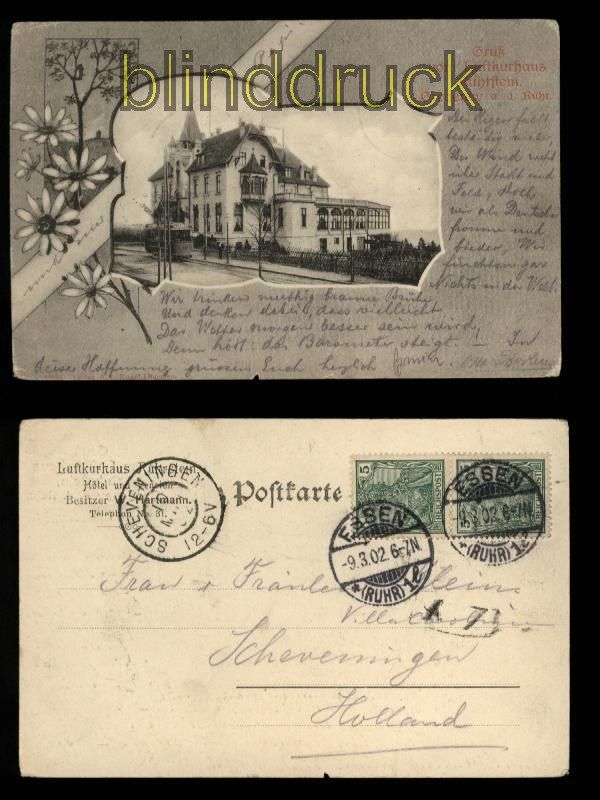 blinddruck
Gruß
vom Luftkurhaus
Ruhrstein.
a. d. Ruhr.
Der Regen fällt
beständig
Der Wind weht
über Stadt und
Feld, Doch
wir als Deutsche
fromme und
bieder. Wir
fürchten gar
Nichts in der Welt.
Wir trinken muthig braune Brühe
Und denken dabei, dass vielleicht
Das Wetter morgen besser sein wird,
Denn hört: das Barometer steigt. – In
dieser Hoffnung grüssen Euch herzlich
Luftkurhaus Ruhrstein
Hôtel und Pension
Besitzer W. Hartmann.
Telephon No. 31.
Postkarte
SCHEVENINGEN
12-6V
5
REICHSPOST
ESSEN
-9.3.02.6-7N.
*(RUHR)1
ESSEN
-9.3.02.6-7N.
*(RUHR)1
Frau & Fräulein
Villa
Scheveningen
Holland